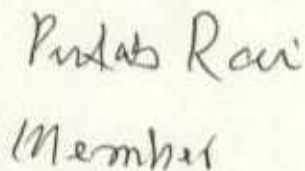 Pratab Rai
Member